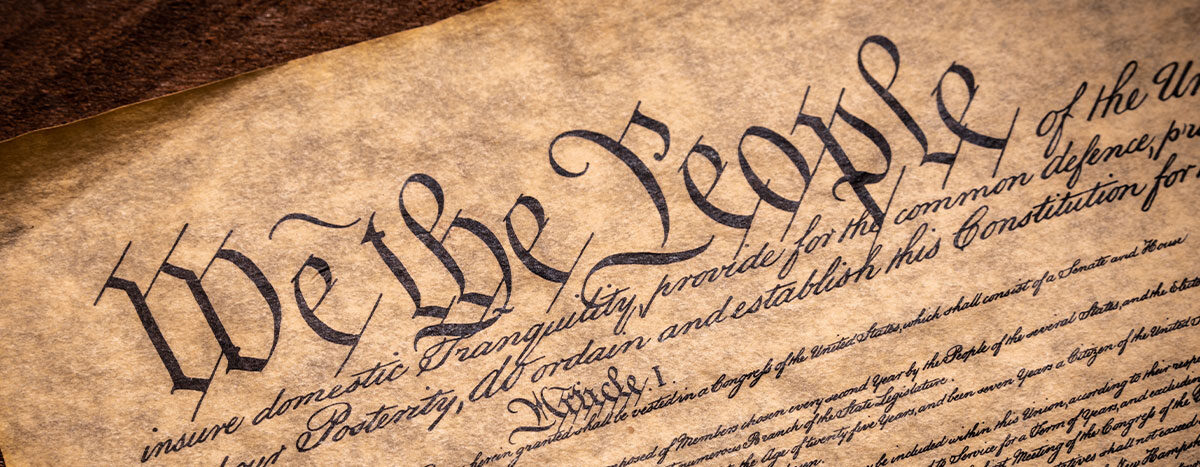 We the People of the Un
insure domestic Tranquility, provide for the common defence, pr
our Posterity, do ordain and establish this Constitution for
Article. I.
herein granted shall be vested in a Congress of the United States, which shall consist of a Senate and House
posed of Members chosen every second Year by the People of the several States, and the Elect
numerous Branch of the State Legislature.
the Age of twenty five Years, and been seven Years a Citizen of the United
be included within this Union, according to their respe
to Service for a Term of Years, and excluding
Meeting of the Congress of the
shall not exceed
New Hampsh